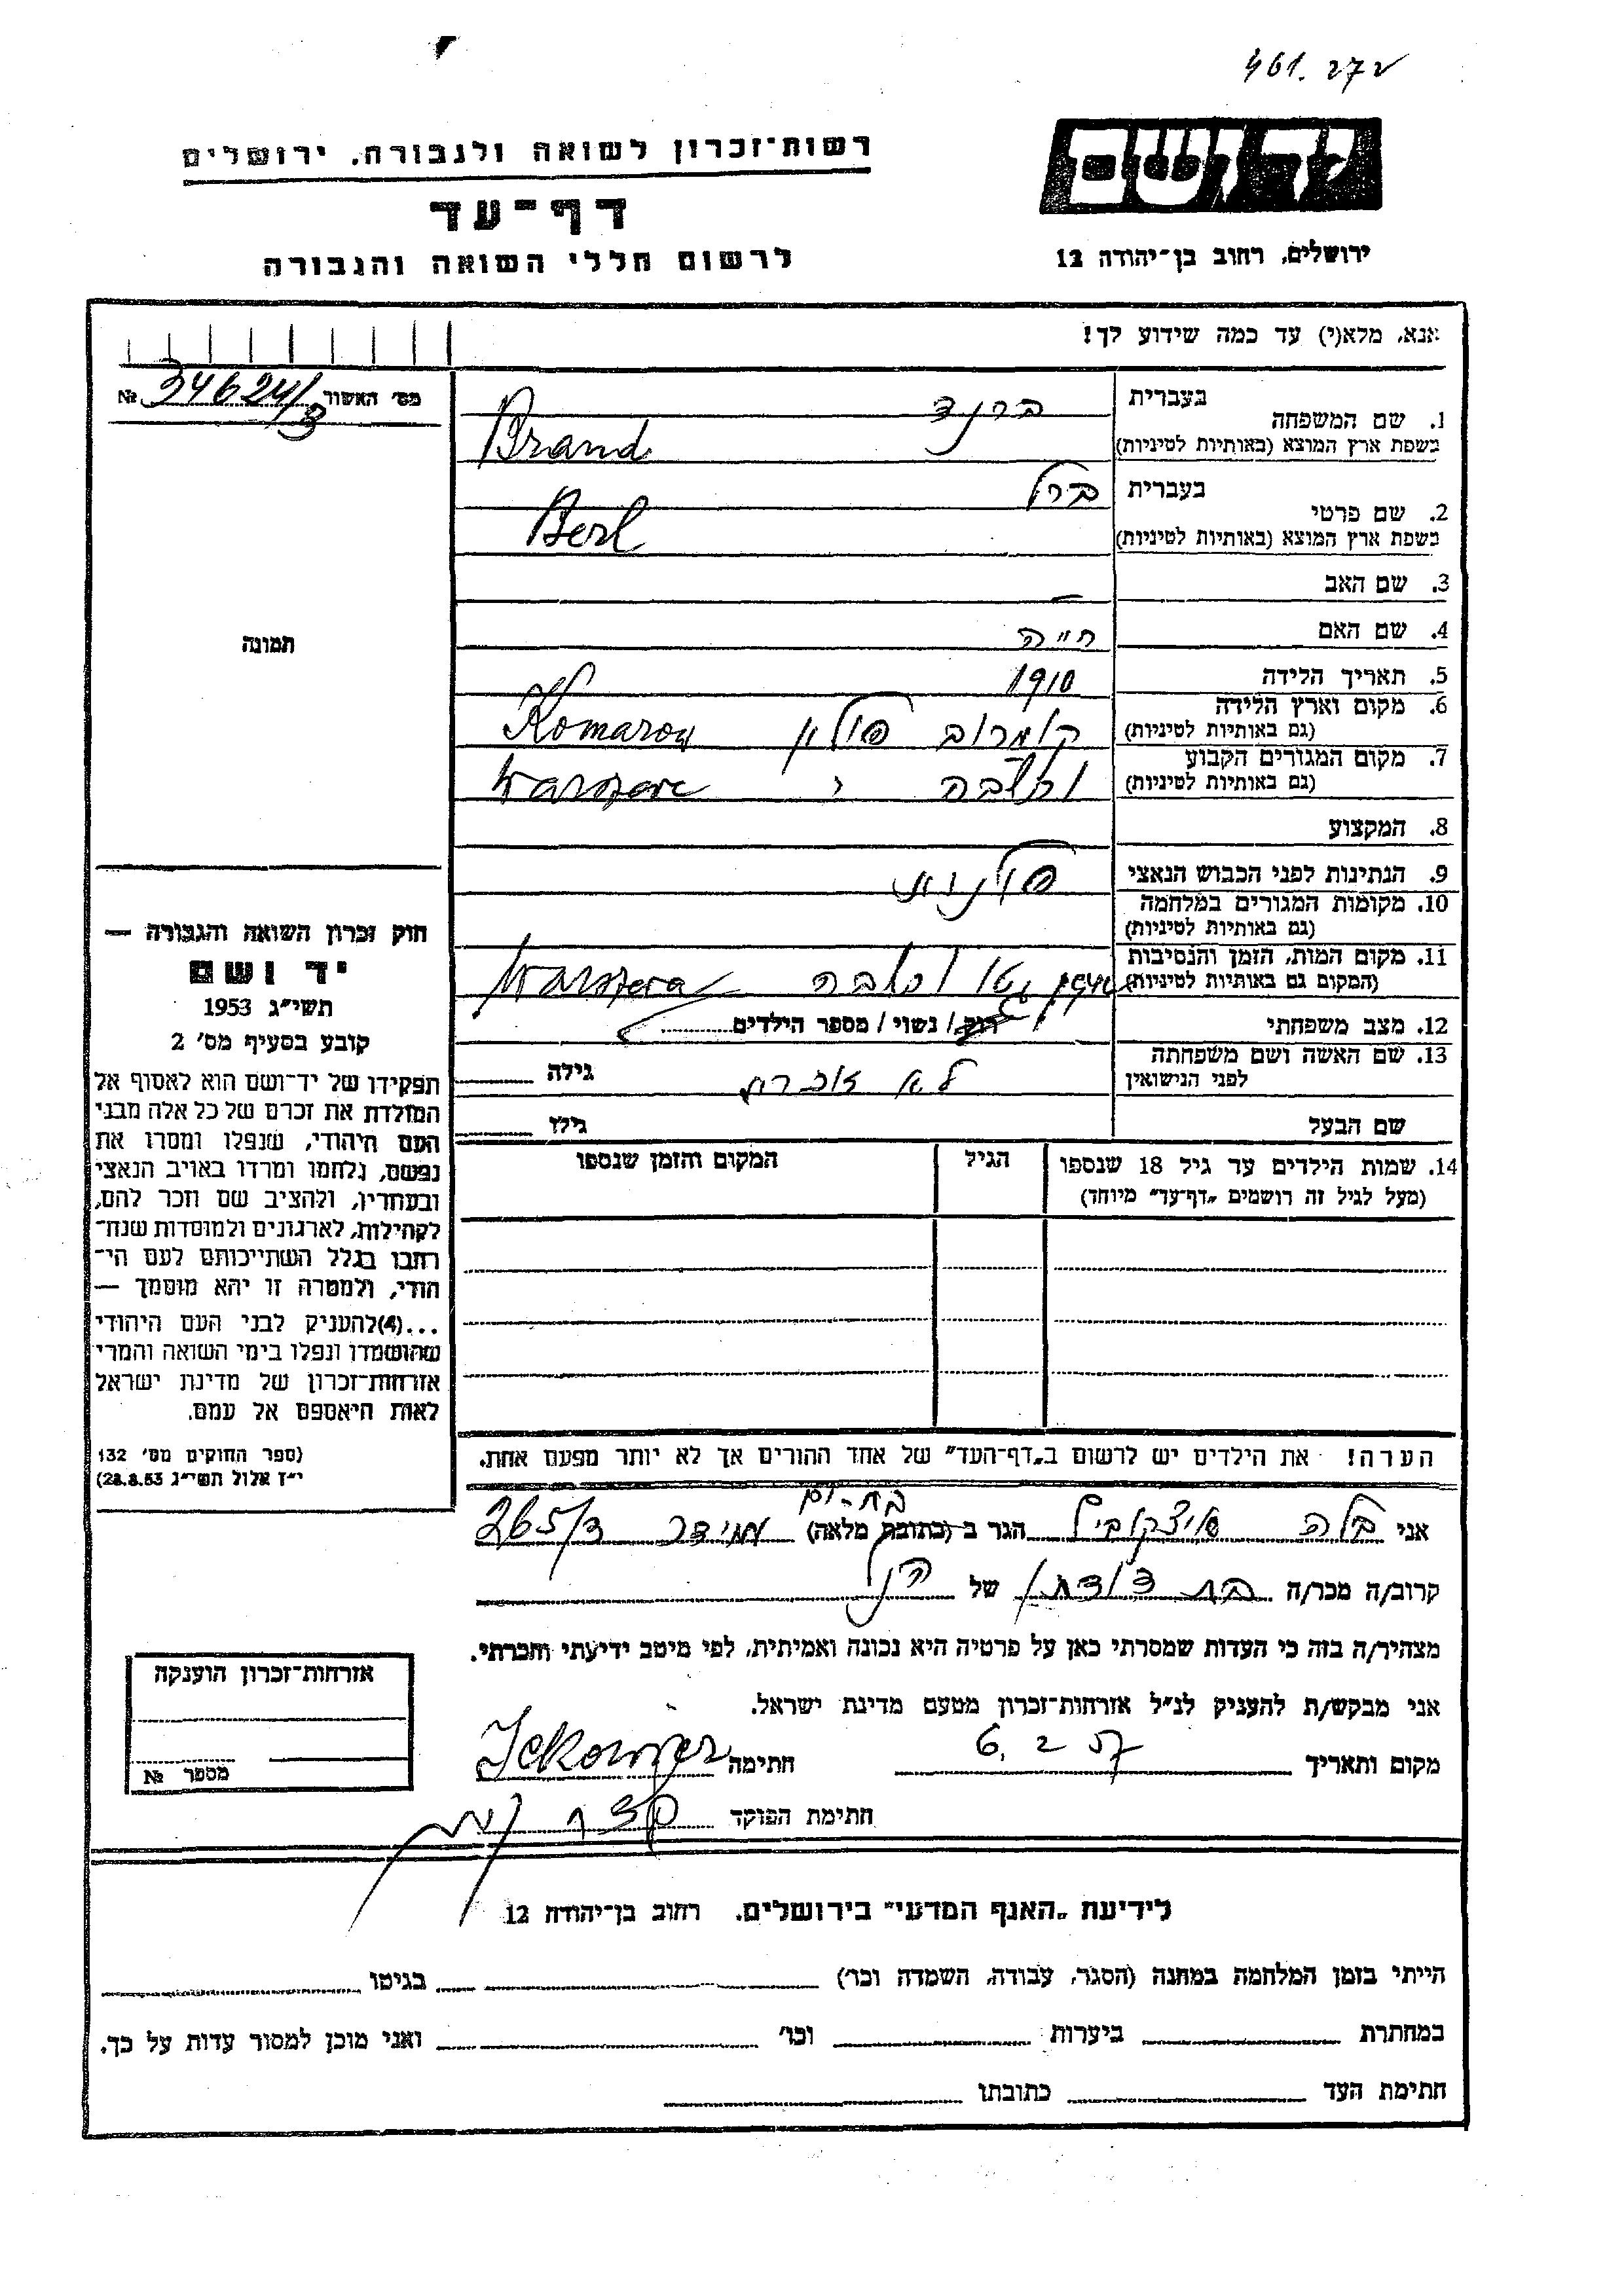 461. 272
רשות־זכרון לשואה ולגבורה, ירושלים
יד ושם
דף־עד
לרשום חללי השואה והגבורה
ירושלים, רחוב בן־יהודה 12
אנא, מלא(י) עד כמה שידוע לך!
מס׳ האשור № 34624/3
1. שם המשפחה
בעברית ברנד
בשפת ארץ המוצא (באותיות לטיניות) Brand
2. שם פרטי
בעברית ברל
בשפת ארץ המוצא (באותיות לטיניות) Berl
3. שם האב —
4. שם האם חייה
5. תאריך הלידה 1910
6. מקום וארץ הלידה
(גם באותיות לטיניות) קומרוב פולין Komarow
7. מקום המגורים הקבוע
(גם באותיות לטיניות) ורשבה
8. המקצוע
9. הנתינות לפני הכבוש הנאצי פולנית
10. מקומות המגורים במלחמה
(גם באותיות לטיניות)
11. מקום המות, הזמן והנסיבות
(המקום גם באותיות לטיניות) גטו ורשבה Warszawa
12. מצב משפחתי רוק / נשוי / מספר הילדים
13. שם האשה ושם משפחתה
לפני הנישואין לא זוכרת גילה
שם הבעל גילו
14. שמות הילדים עד גיל 18 שנספו הגיל המקום והזמן שנספו
(מעל לגיל זה רושמים „דף־עד״ מיוחד)
הערה! את הילדים יש לרשום ב„דף־העד״ של אחד ההורים אך לא יותר מפעם אחת.
תמונה
חוק זכרון השואה והגבורה —
יד ושם
תשי״ג 1953
קובע בסעיף מס׳ 2
תפקידו של יד־ושם הוא לאסוף אל
המולדת את זכרם של כל אלה מבני
העם היהודי, שנפלו ומסרו את
נפשם, נלחמו ומרדו באויב הנאצי
ובעוזריו, ולהציב שם וזכר להם,
לקהילות, לארגונים ולמוסדות שנח־
רחבו בגלל השתייכותם לעם הי־
הודי, ולמטרה זו יהא מוסמך —
...(4)להעניק לבני העם היהודי
שהושמדו ונפלו בימי השואה והמרי
אזרחות־זכרון של מדינת ישראל
לאות היאספם אל עמם.
(ספר החוקים מס׳ 132
י״ז אלול תשי״ג 28.8.53)
בת-ים
אני בלה איצקוביץ הגר ב (כתובת מלאה) עמידר 265/3
קרוב/ה מכר/ה בת דודתו של הנ״ל
מצהיר/ה בזה כי העדות שמסרתי כאן על פרטיה היא נכונה ואמיתית, לפי מיטב ידיעתי והכרתי.
אני מבקש/ת להעניק לנ״ל אזרחות־זכרון מטעם מדינת ישראל.
מקום ותאריך 6. 2 57 חתימה
חתימת הפוקד
אזרחות־זכרון הוענקה
מספר №
לידיעת „האגף המדעי״ בירושלים. רחוב בן־יהודה 12
הייתי בזמן המלחמה במחנה (הסגר, עבודה, השמדה וכו׳) בגיטו
במחתרת ביערות וכו׳ ואני מוכן למסור עדות על כך.
חתימת העד כתובתו